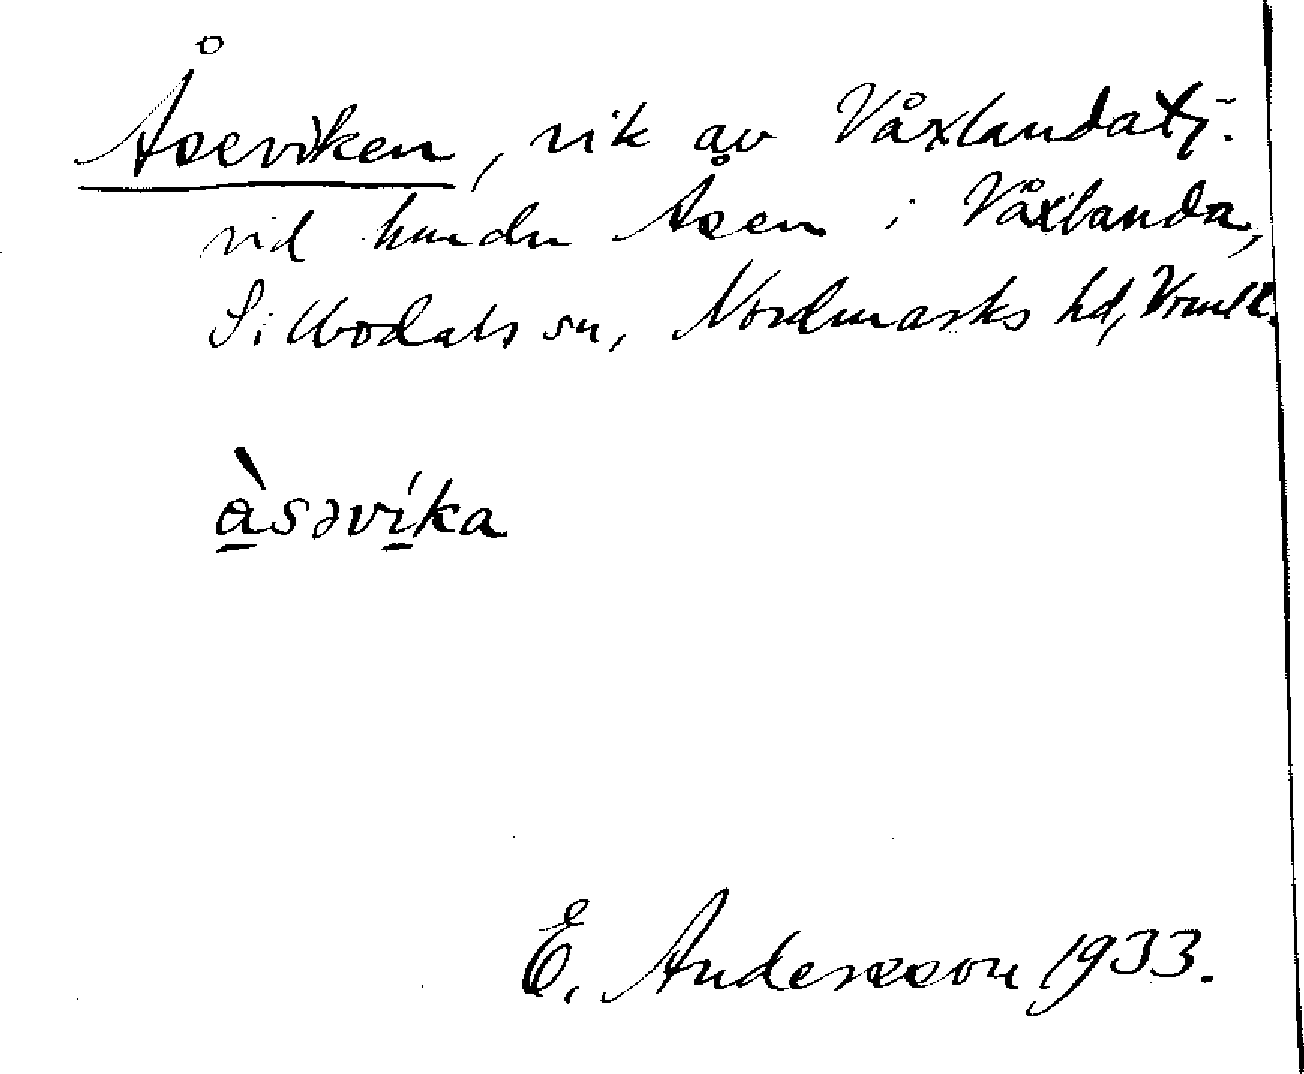 Åseviken, vik av Våxlandatj:
vid hmdn Åsen i Våxlanda,
Sillbodals sn, Nordmarks hd, Vrmld.
à̱səví̱ka
E. Andersson 1933.